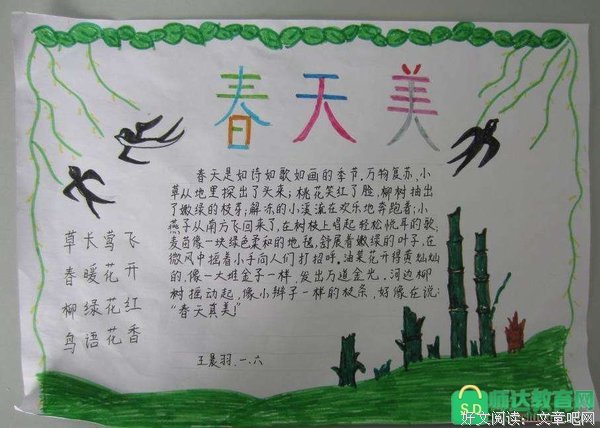 春天美
春天是如诗如歌如画的季节,万物复苏,小
草从地里探出了头来;桃花笑红了脸,柳树抽出
了嫩绿的枝芽;解冻的小溪流在欢乐地奔跑着;小
燕子从南方飞回来了,在树枝上唱起轻松悦耳的歌;
麦苗像一块绿色柔和的地毯,舒展着嫩绿的叶子,在
微风中摇着小手向人们打招呼。油菜花开得黄灿灿
的,像一大堆金子一样,发出万道金光。河边柳
树摇动起,像小辫子一样的枝条,好像在说:
“春天真美”
王晨羽.一.六
草长莺飞
春暖花开
柳绿花红
鸟语花香
师达教育网
好文阅读:文章吧网